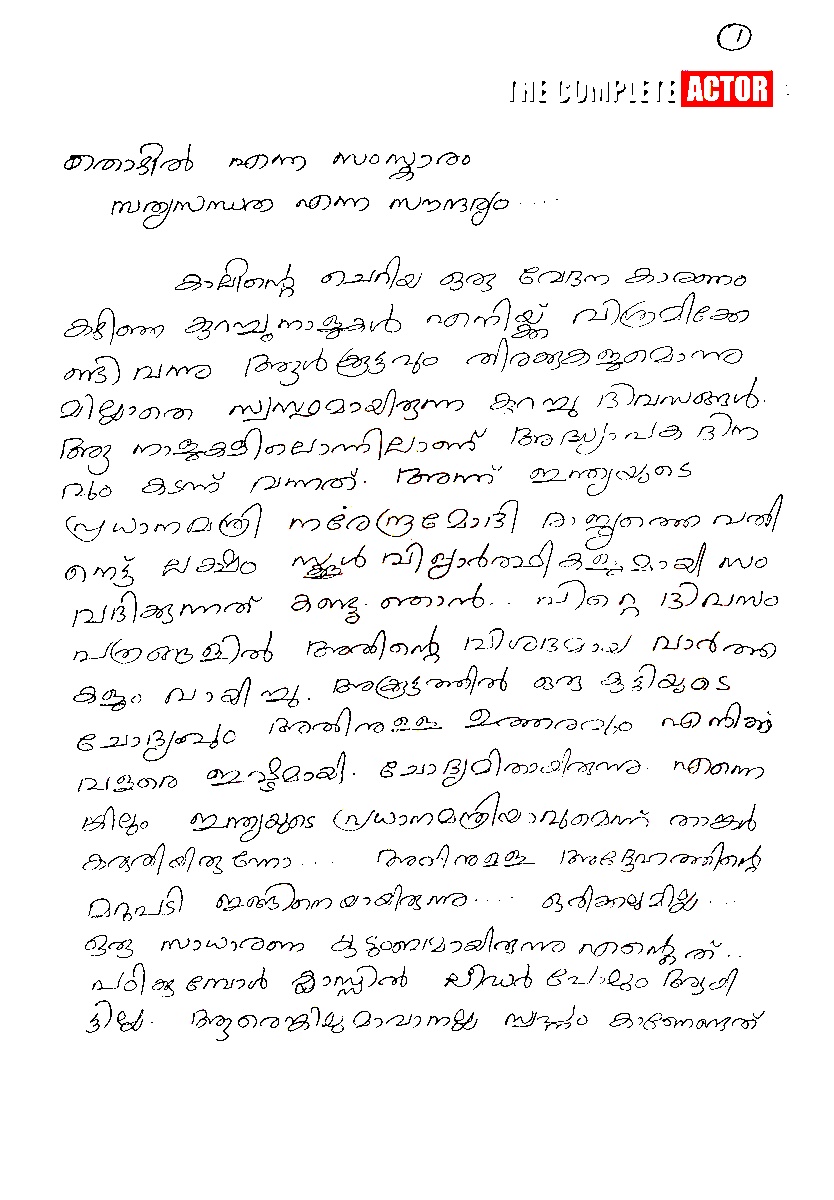 1
THE COMPLETE ACTOR
തൊഴിൽ എന്ന സംസ്കാരം
സത്യസന്ധത എന്ന സൗന്ദര്യം ....
കാലിന്റെ ചെറിയ ഒരു വേദന കാരണം
കഴിഞ്ഞ കുറച്ചുനാളുകൾ എനിയ്ക്ക് വിശ്രമിക്കേ
ണ്ടി വന്നു ആൾക്കൂട്ടവും തിരക്കുകളുമൊന്നു
മില്ലാതെ സ്വസ്ഥമായിരുന്ന കുറച്ചു ദിവസങ്ങൾ.
ആ നാളുകളിലൊന്നിലാണ് അദ്ധ്യാപക ദിന
വും കടന്ന് വന്നത്. അന്ന് ഇന്ത്യയുടെ
പ്രധാനമന്ത്രി നരേന്ദ്രമോദി രാജ്യത്തെ പതി
നെട്ട് ലക്ഷം സ്കൂൾ വിദ്യാർത്ഥികളുമായി സം
വദിക്കുന്നത് കണ്ടു ഞാൻ.. പിറ്റെ ദിവസം
പത്രങ്ങളിൽ അതിന്റെ വിശദമായ വാർത്ത
കളും വായിച്ചു. അക്കൂട്ടത്തിൽ ഒരു കുട്ടിയുടെ
ചോദ്യവും അതിനുള്ള ഉത്തരവും എനിക്ക്
വളരെ ഇഷ്ടമായി. ചോദ്യമിതായിരുന്നു. എന്നെ
ങ്കിലും ഇന്ത്യയുടെ പ്രധാനമന്ത്രിയാവുമെന്ന് താങ്കൾ
കരുതിയിരുന്നോ... അതിനുള്ള അദ്ദേഹത്തിന്റെ
മറുപടി ഇങ്ങിനെയായിരുന്നു.... ഒരിക്കലുമില്ല...
ഒരു സാധാരണ കുടുംബമായിരുന്നു എന്റെത്..
പഠിക്കുമ്പോൾ ക്ലാസ്സിൽ ലീഡർ പോലും ആയി
ട്ടില്ല. ആരെങ്കിലുമാവാനല്ല സ്വപ്നം കാണേണ്ടത്